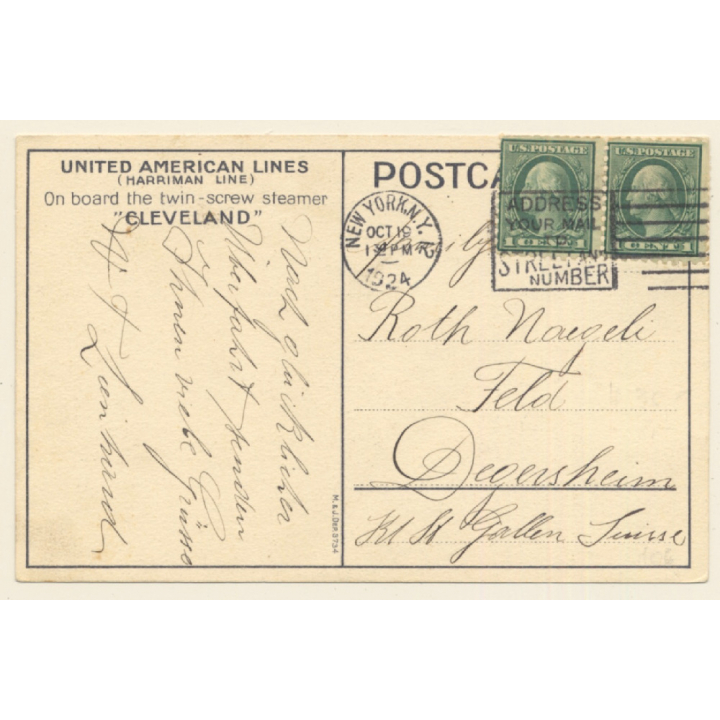 UNITED AMERICAN LINES
(HARRIMAN LINE)
On board the twin-screw steamer
"CLEVELAND"
Nach glücklicher
Überfahrt senden
Ihnen viele Grüsse
POSTCA
U.S. POSTAGE
U.S. POSTAGE
1 CENT 1
1 CENT 1
NEW YORK, N.Y. 2
OCT 19
1 30 PM
1924
ADDRESS
YOUR MAIL
TO
STREET AND
NUMBER
Family
Roth Naegeli
Feld
Degersheim
Kt St Gallen Suisse
M.& J. DEP. 3734